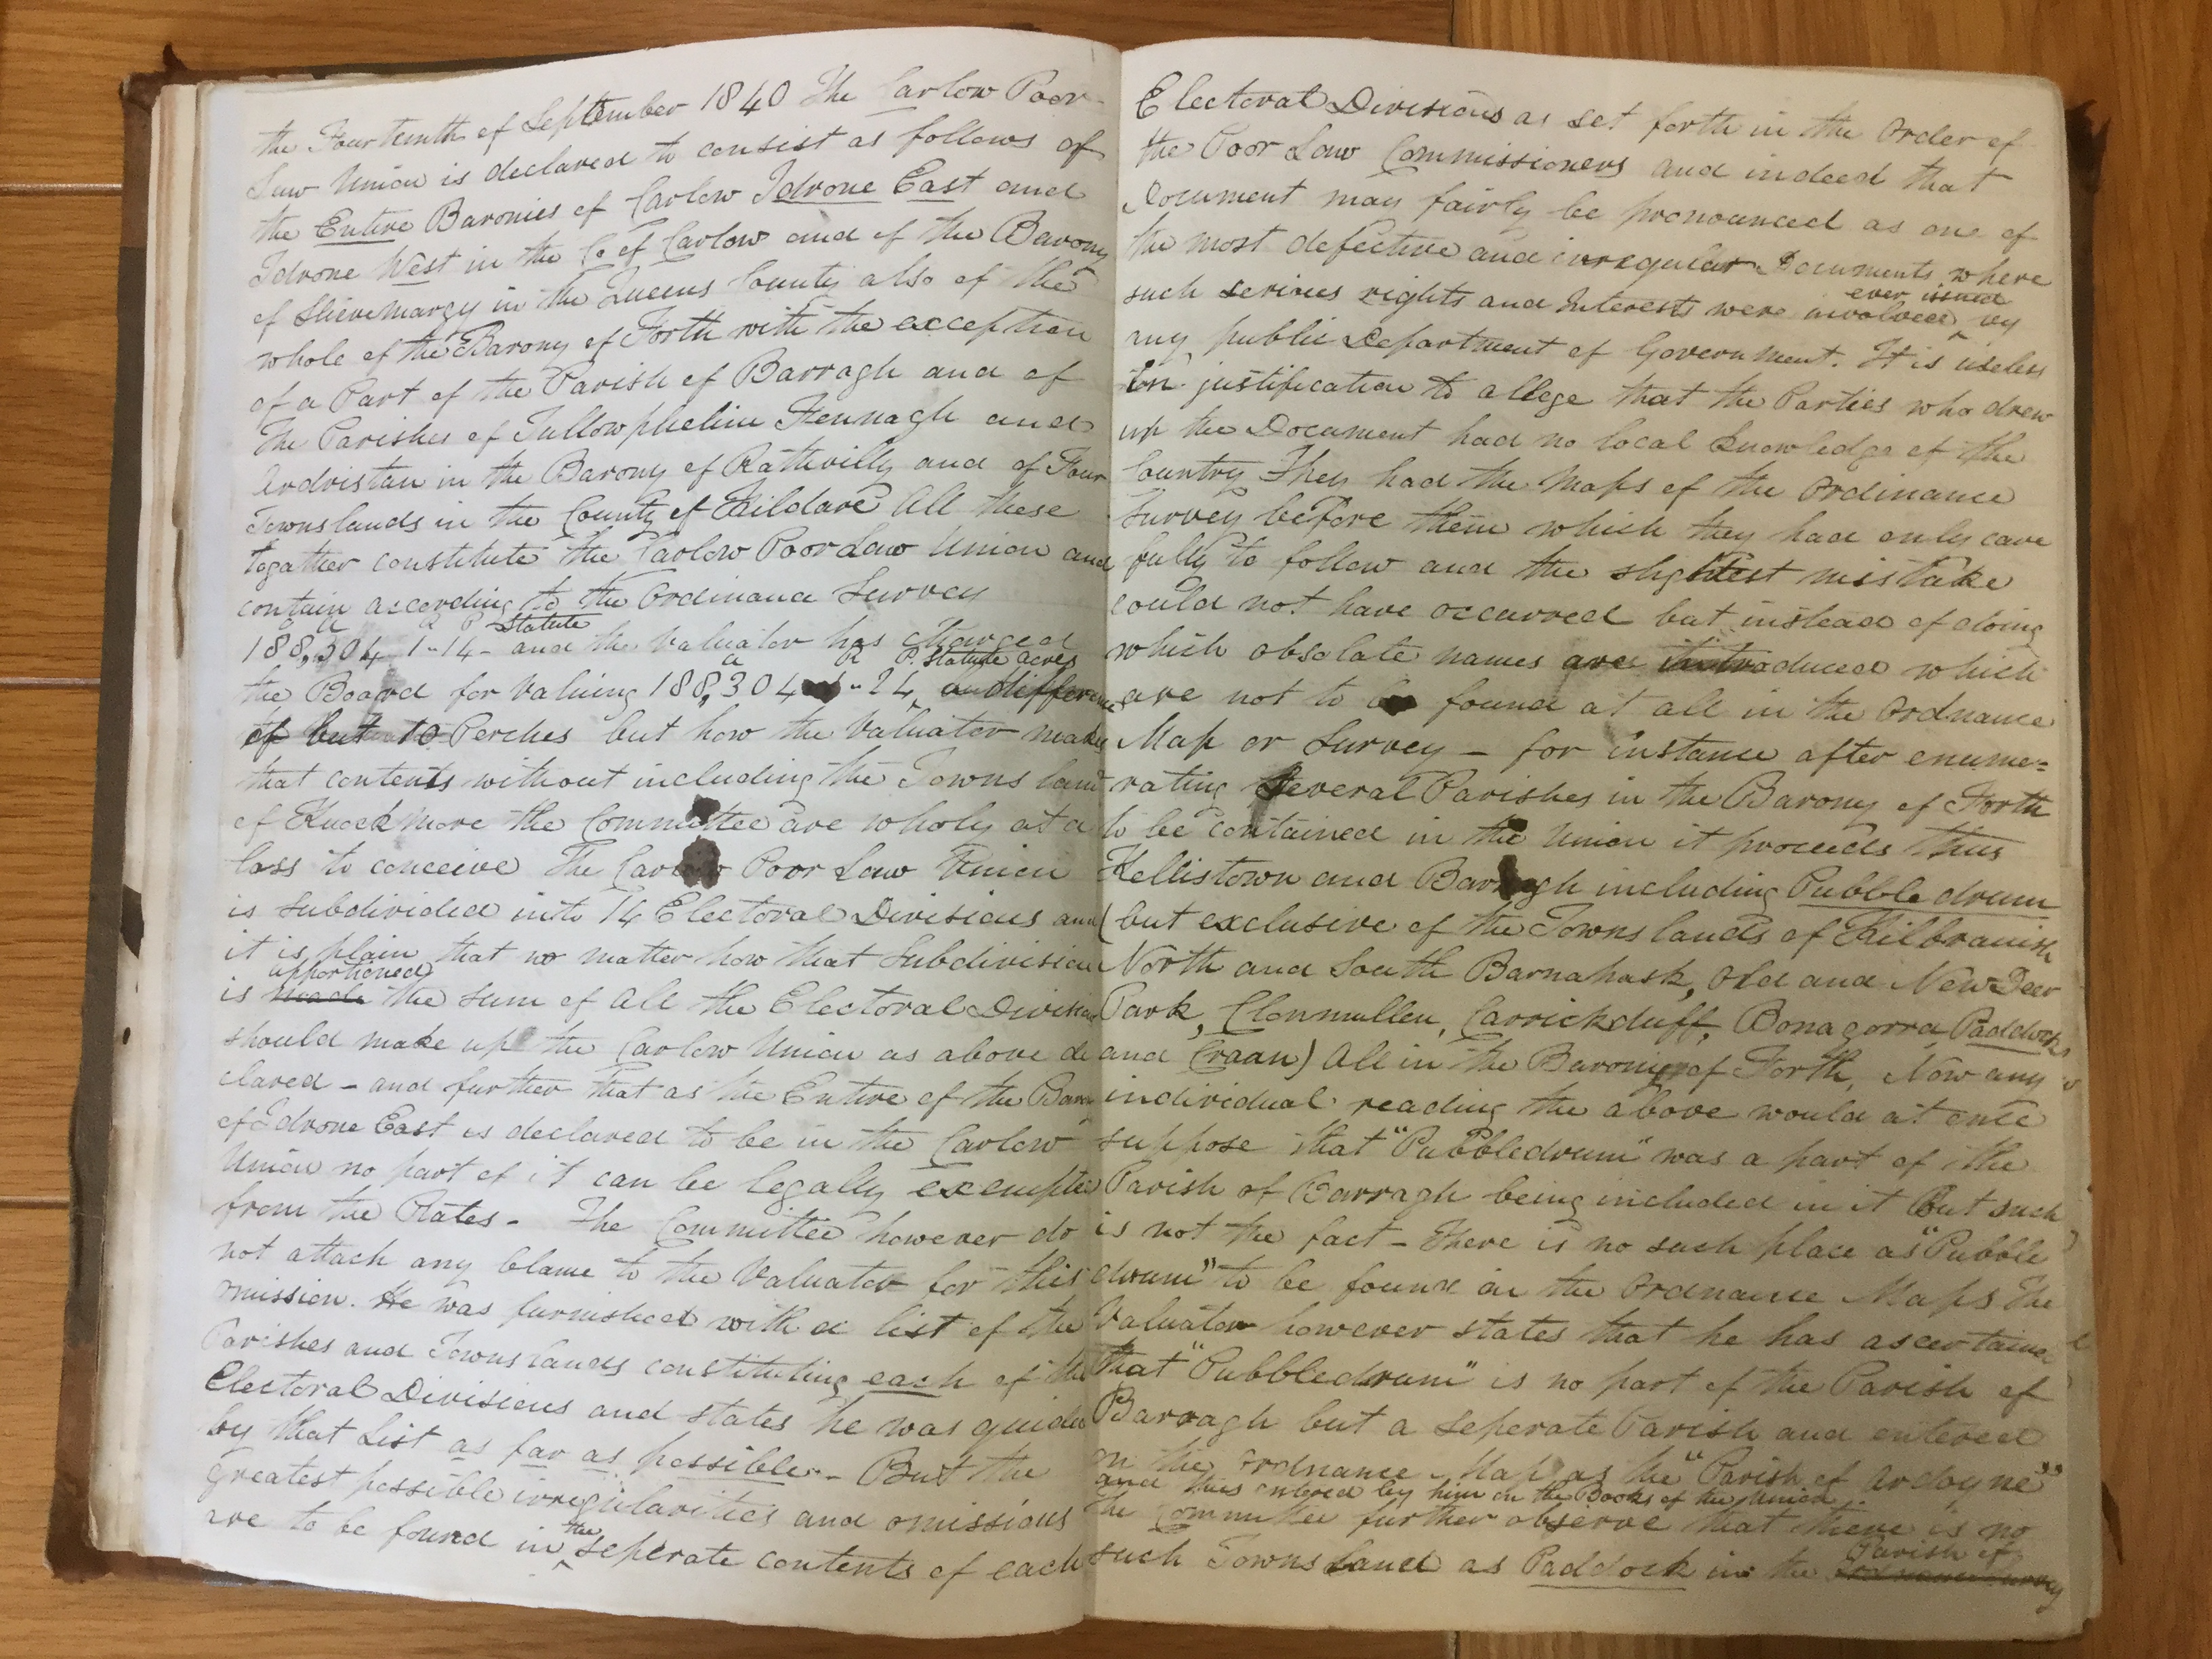 the Fourteenth of September 1840 The Carlow Poor
Law Union is declared to consist as follows of
the Entire Baronies of Carlow Idrone East and
Idrone West in the Co of Carlow and of the Barony
of Slievemargy in the Queens County also of the
whole of the Barony of Forth with the exception
of a Part of the Parish of Barragh and of
The Parishes of Tullowphelim Fennagh and
Ardristan in the Barony of Rathvilly and of Four
Townslands in the County of Kildare All these
together constitute the Carlow Poor Law Union and
contain according to the Ordinance Survey
A R P Statute
188,304 1-14- and the Valuator has charged
a R P. Statute acres
the Board for Valuing 188,304 -24 a difference
of but 10 Perches but how the Valuator makes
that contents without including the Towns land
of Knockmore the Committee are wholy at a
loss to conceive The Carlow Poor Law Union
is subdivided into 14 Electoral Divisions and
it is plain that no matter how that Subdivision
apportioned
is made the sum of all the Electoral Divisions
should make up the Carlow Union as above de
clared - and further that as the Entire of the Barony
of Idrone East is declared to be in the Carlow
Union no part of it can be legally exempted
from the Rates - The Committee however do
not attach any blame to the Valuator for this
omission. He was furnished with a list of the
Parishes and Townslands constituting each of the
Electoral Divisions and states he was guided
by that List as far as possible - But the
greatest possible irregularities and omissions
the
are to be found in seperate contents of each
Electoral Divisions as set forth in the Order of
the Poor Law Commissioners and indeed that
Document may fairly be pronounced as one of
the most defective and irregular Documents where
ever issued
such serious rights and Interests were involved by
any public Department of Government. It is useless
in justification to allege that the Parties who drew
up the Document had no local knowledge of the
Country They had the Maps of the Ordinance
Survey before them which they had only care
fully to follow and the slightest mistake
could not have occurred but instead of doing
which obsolate names are introduced which
are not to be found at all in the Ordnance
Map or Survey - for instance after enume=
rating Several Parishes in the Barony of Forth
to be contained in the Union it proceeds thus
Kellistown and Barragh including Pubble drum
(but exclusive of the Townslands of Kilbranish
North and South Barnahask, Old and New Deer
Park, Clonmullen, Carrickduff, Bonagorra, Paddocks
and Craan) All in the Barony of Forth, Now any
individual reading the above would at once
suppose that "Pubbledrum" was a part of the
Parish of Barragh being included in it But such
is not the fact - There is no such place as "Pubble
drum" to be found in the Ordnance Maps The
Valuator however states that he has ascertained
that "Pubbledrum" is no part of the Parish of
Barragh but a seperate Parish and entered
on the Ordnance Map as the "Parish of Ardoyne"
and thus entered by him on the Books of the Union
The Committee further observe that there is no
Parish of
such Towns Land as Paddock in the Ordnance Survey